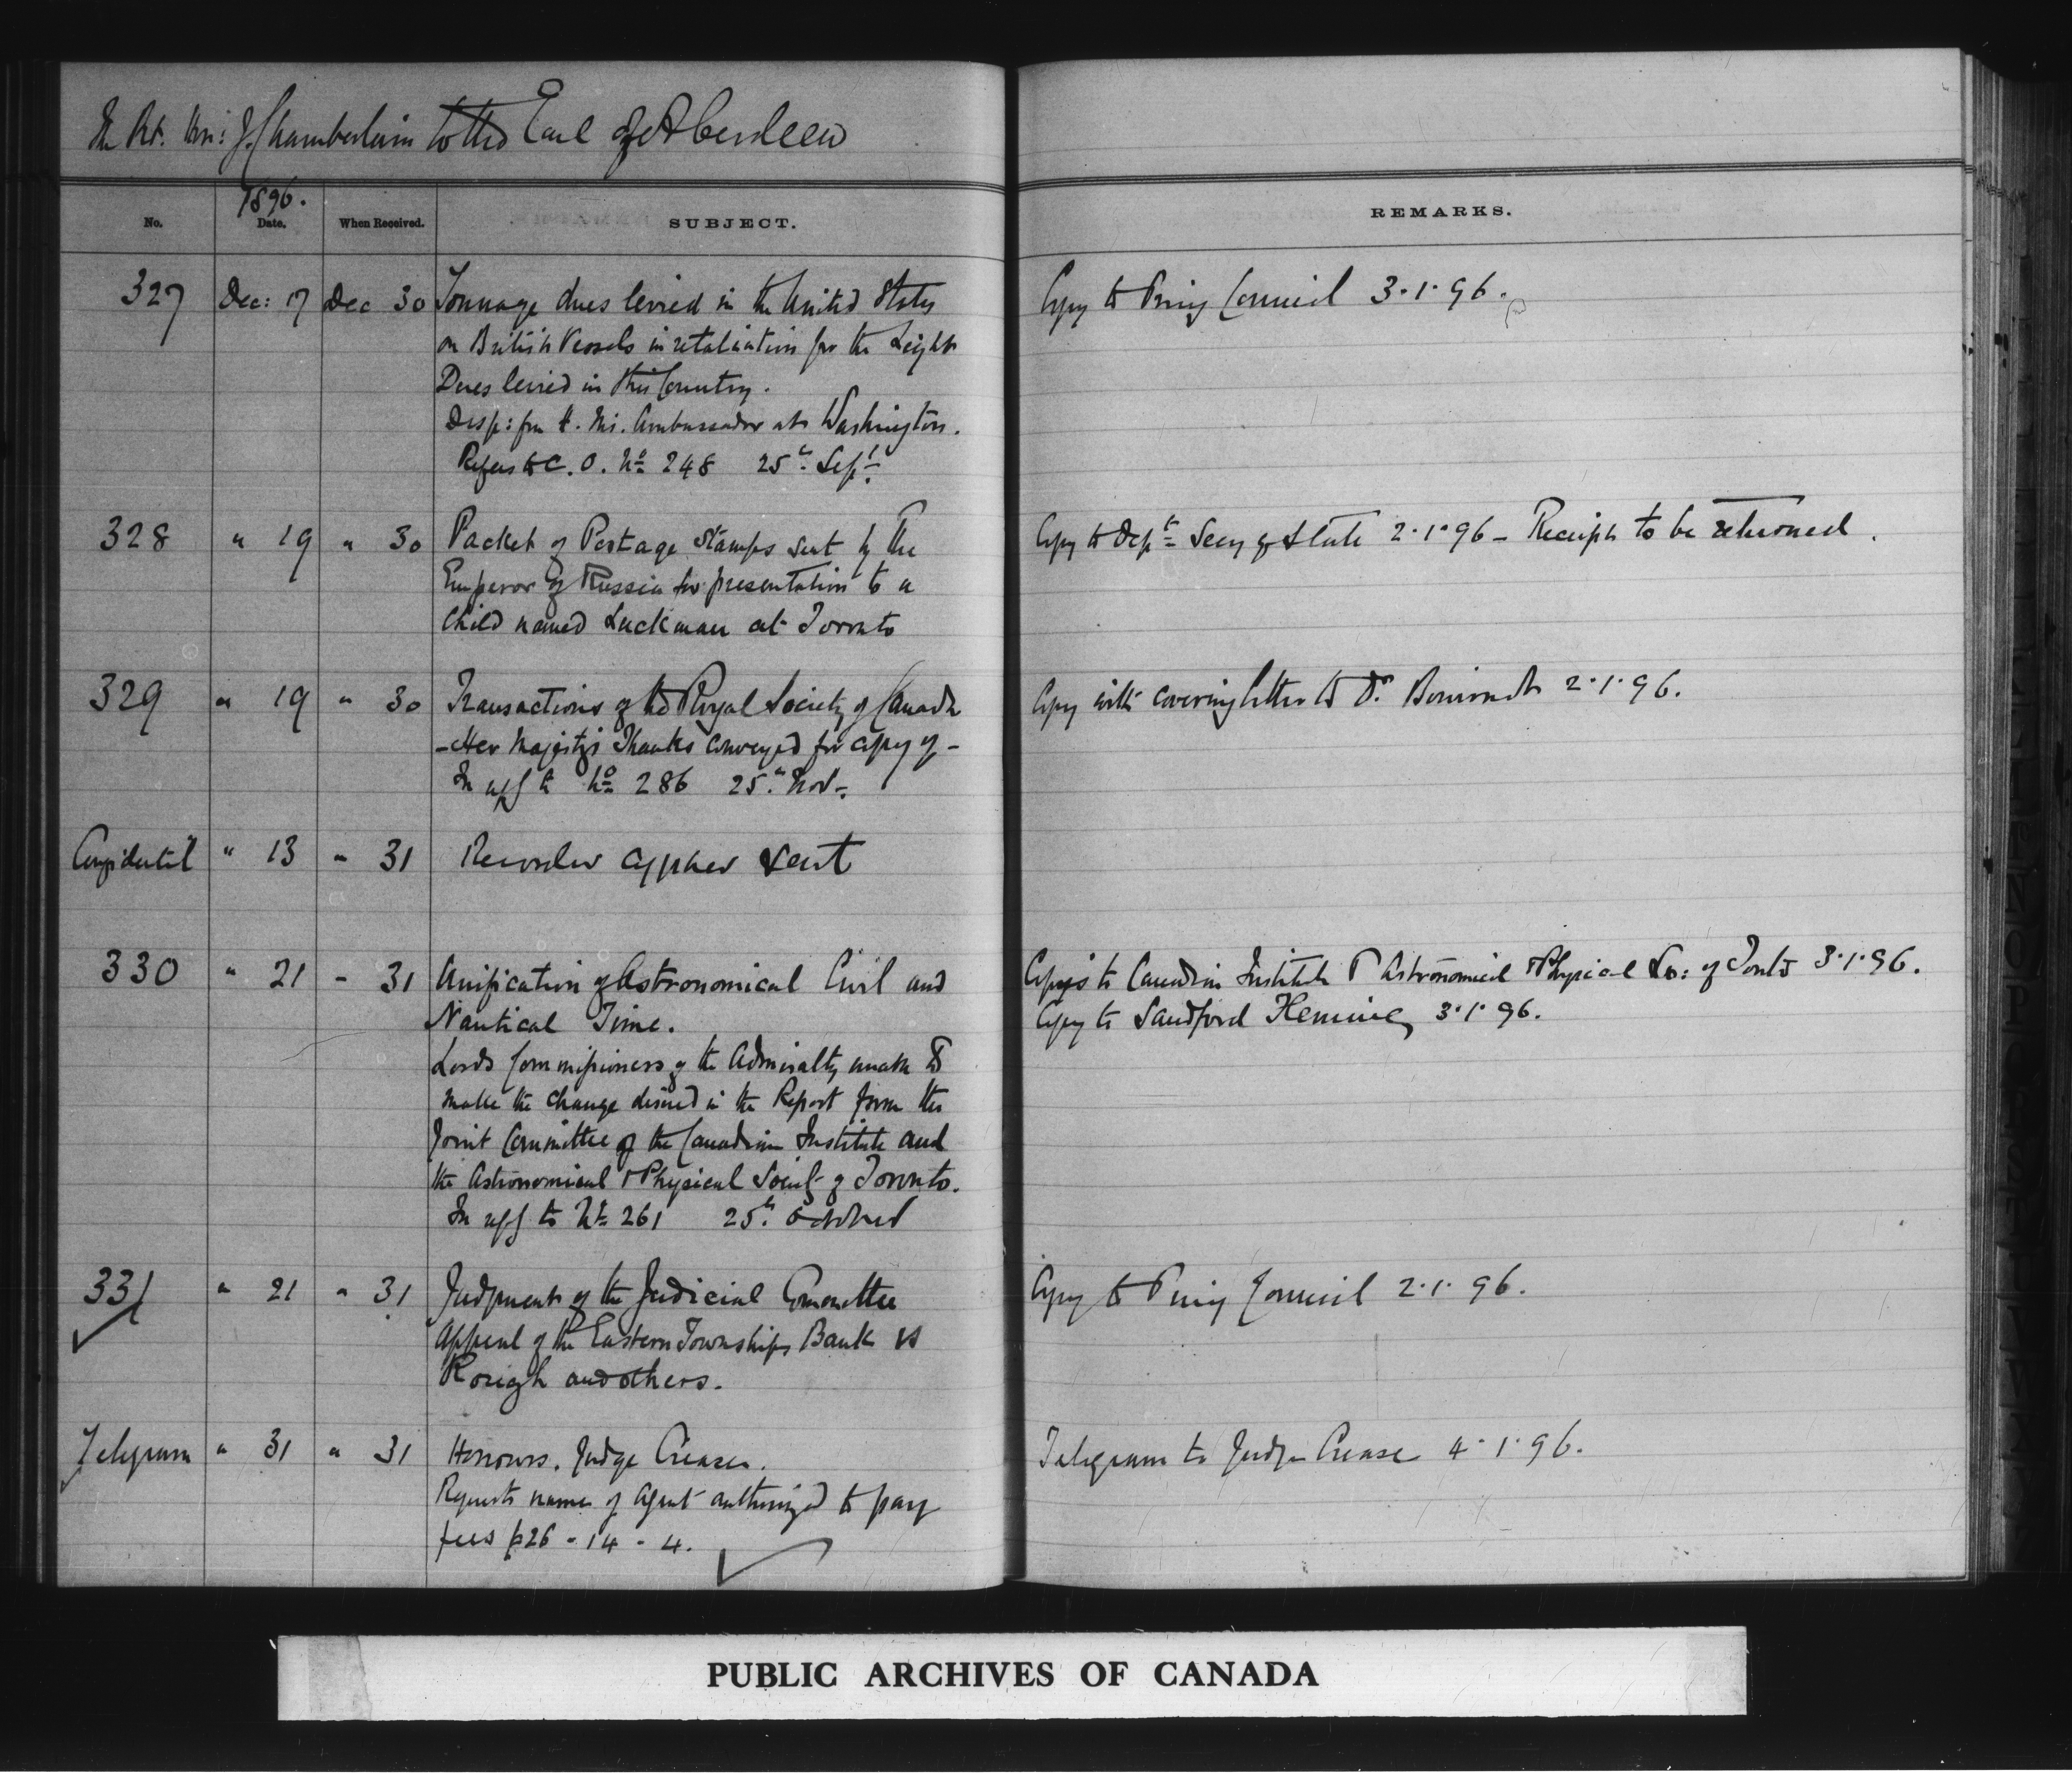 The Rt. Hon: J. Chamberlain to the Earl of Aberdeen
1896.
No. Date. When Received. SUBJECT. REMARKS.
327 Dec: 17 Dec 30 Tonnage dues levied in the United States Copy to Privy Council 3·1·96.
on British Vessels in retaliation for the Light
Dues levied in this Country.
Desp: fm H. Ms. Ambassador at Washington.
Refers to C. O. No 248 25th Sept.
328 " 19 " 30 Packet of Postage Stamps sent by the Copy to Dept Secy of State 2·1·96 - Receipt to be returned.
Emperor of Russia for presentation to a
Child named Luckman at Toronto
329 " 19 " 30 Transactions of the Royal Society of Canada Copy with covering letter to Dr. Bourinot 2·1·96.
- Her Majesty's Thanks conveyed for copy of -
In reply to No 286 25th Nov.
Confidential " 13 " 31 cypher sent
330 " 21 " 31 Unification of Astronomical Civil and Copys to Canadian Institute & Astronomical & Physical So: of Tonto 3·1·96.
Nautical Time. Copy to Sandford Fleming 3·1·96.
Lords Commissioners of the Admiralty unable to
make the change desired in the Report from the
Joint Committee of the Canadian Institute and
the Astronomical & Physical Society of Toronto.
In reply to No 261 25th October
331 " 21 " 31 Judgment of the Judicial Committee Copy to Privy Council 2·1·96.
Appeal of the Eastern Townships Bank vs
and others.
Telegram " 31 " 31 Honours. Judge Crease. Telegram to Judge Crease 4·1·96.
Requests name of Agent authorized to pay
fees £26 - 14 - 4.
PUBLIC ARCHIVES OF CANADA